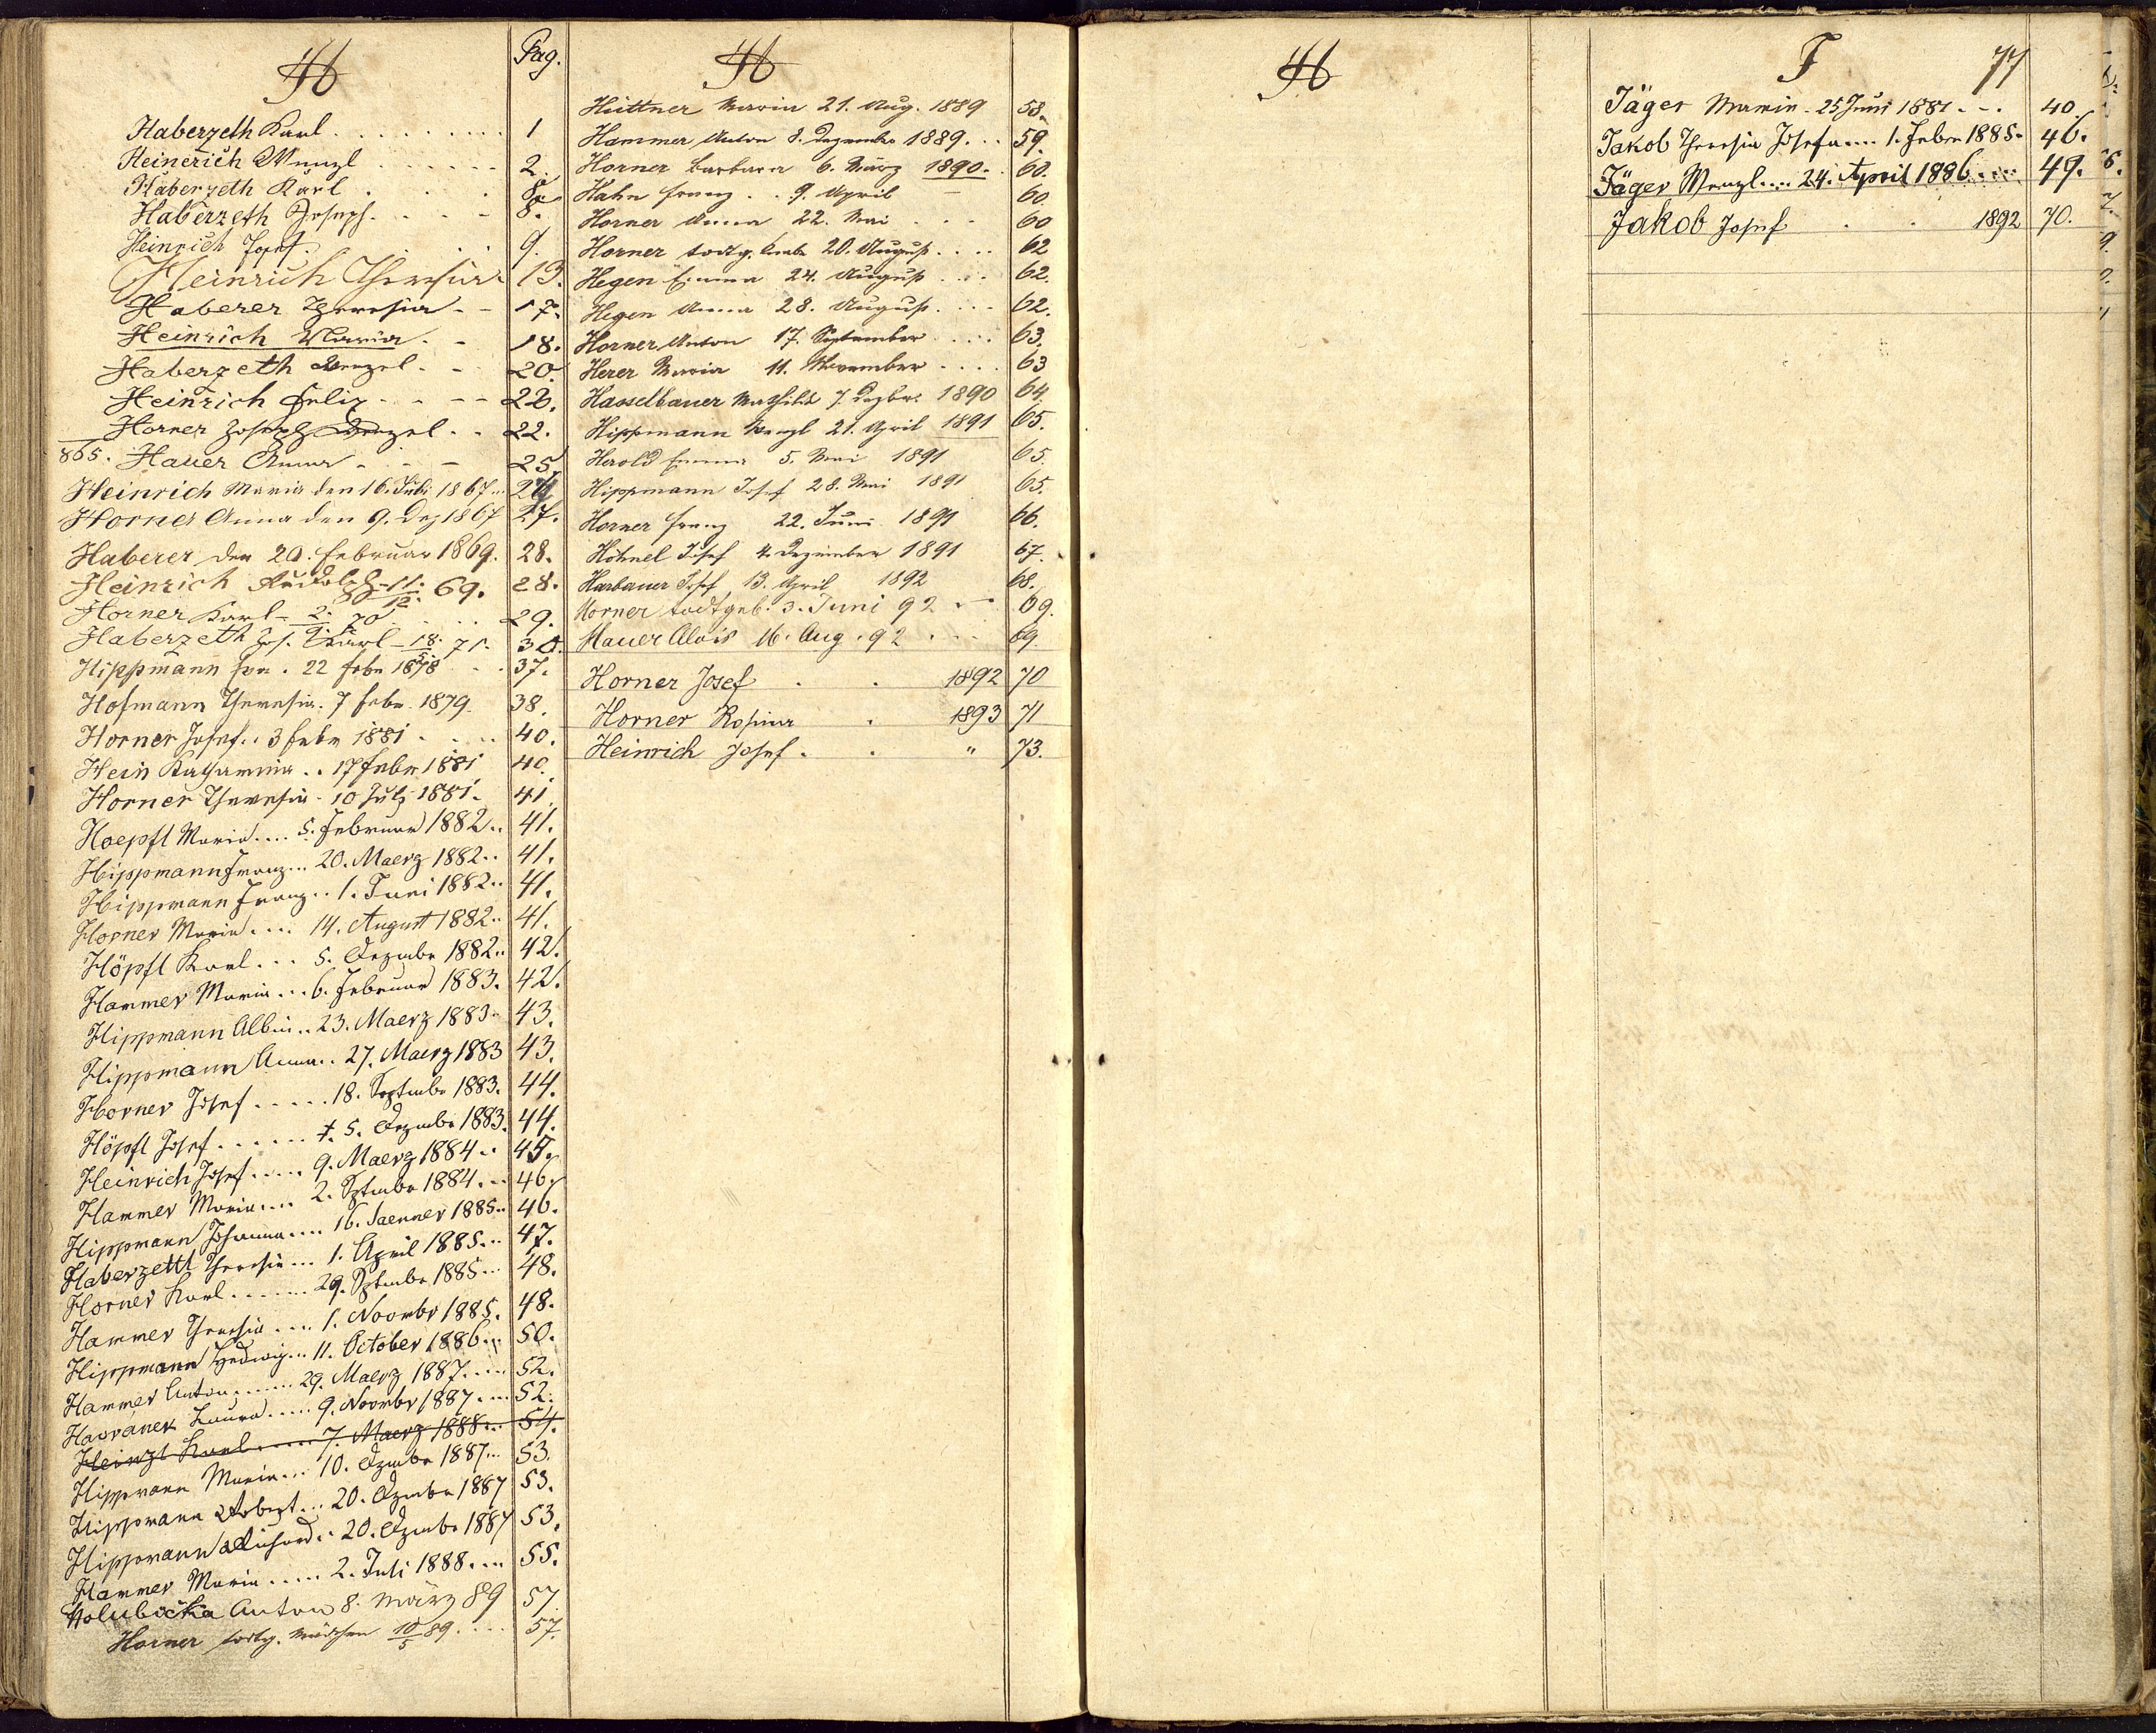 H Pag.
Haberzeth Karl . . . . . . . . . 1
Heinerich Wenzl . . . . . . 2.
Haberzeth Karl . . . 8.
Haberzeth Joseph . . . . 8.
Heinrich Josef . . . . 9.
Heinrich Theresia 13.
Haberer Theresia - - 17.
Heinrich Maria . - 18.
Haberzeth Wenzel . - 20.
Heinrich Felix - - - - 22.
Horner Joseph Wenzel . . 22.
865. Hauer Anna - - - 25.
Heinrich Maria den 16. Juli 1867 ..
Horner Anna den 9. Dez 1867 27.
Haberer den 20. Februar 1869. 28.
Heinrich Rudolph - 11./12. 69. 28.
Horner Karl - 70 . . . 29.
Haberzeth Jos. Karl - 18./5. 71. 30.
Hippmann . 22 Febr 1878 . . 37.
Hofmann Theresia . 7 Febr. 1879. 38.
Horner Josef . . 3 Febr 1881 . . . . 40.
Hein Katharina . . 17 Febr 1881 40.
Horner Theresia - 10 Juli 1881. 41.
Hoepfl Maria .... 5. Februar 1882 .. 41.
Hippmann Franz ... 20. Maerz 1882 .. 41.
Hippmann Franz .. 1. Juni 1882 .. 41.
Horner Maria .... 14. August 1882 .. 41.
Höpfl Karl ... 5. Dezmbr 1882 .. 42.
Hammer Maria ... 6. Februar 1883. 42.
Hippmann Albin .. 23. Maerz 1883. 43.
Hippmann Anna .. 27. Maerz 1883 43.
Horner Josef ..... 18. Septmbr 1883. 44.
Höpfl Josef ...... †. 5. Dezmbr 1883. 44.
Heinrich Josef ..... 9. Maerz 1884 .. 45.
Hammer Maria .... 2. Sptmbr 1884 ... 46.
Hippmann Johanna .... 16. Jaenner 1885 .. 46.
Haberzettl Theresia ... 1. April 1885 ... 47.
Horner Karl ....... 29. Sptmbr 1885 ... 48.
Hammer Theresia .... 1. Novmbr 1885. 48.
Hippmann Hedwig ... 11. October 1886 ... 50.
Hammer Anton ...... 29. Maerz 1887 .... 52.
Havránek Laura ..... 9. Novmbr 1887 .... 52.
Heinzl Karl ..... 7. Maerz 1888 ... 54.
Hippmann Maria ... 10. Dzmbr 1887 ... 53.
Hippmann Robert ... 20. Dzmbr 1887 53.
Hippmann Richard .. 20. Dzmbr 1887 53.
Hammer Maria ..... 2. Juli 1888 .... 55.
Holubička Anton 8. März 89 57.
Horner todtg. Mädchen 10/5 89 .... 57.
H
Hüttner Maria 21. Aug. 1889 58.
Hammer Anton 8. Dezember 1889 ... 59.
Horner Barbara 6. März 1890. . 60.
Hahn Franz . . 9. April — 60.
Horner Anna 22. Mai - - - 60
Horner todtg. Knabe 20. August .... 62
Hegen Emma 24. August .... 62.
Hegen Anna 28. August .... 62.
Horner Anton 17. September .... 63.
Herer Maria 11. November .... 63
Hasselbauer Mathilde 7. Dezbr. 1890 64.
Hippmann Wenzl 21. April 1891 65.
Herold Emma 5. Mai 1891 65.
Hippmann Josef 28. Mai 1891 65.
Horner Franz 22. Juni 1891 66.
Höhnel Josef 4. Dezember 1891 67.
Harbauer Josef 13. April 1892 68.
Horner todtgeb. 3. Juni 92 - - 69.
Hauer Alois 16. Aug. 92 . . . 69.
Horner Josef . . 1892 70
Horner Rosina . 1893 71
Heinrich Josef . . " 73.
H
J 77
Jäger Maria . 25 Juni 1881 - - - 40.
Jakob Theresia Josefa .... 1. Febr 1885. 46.
Jäger Wenzl .... 24. April 1886 .... 49.
Jakob Josef . . 1892 70.